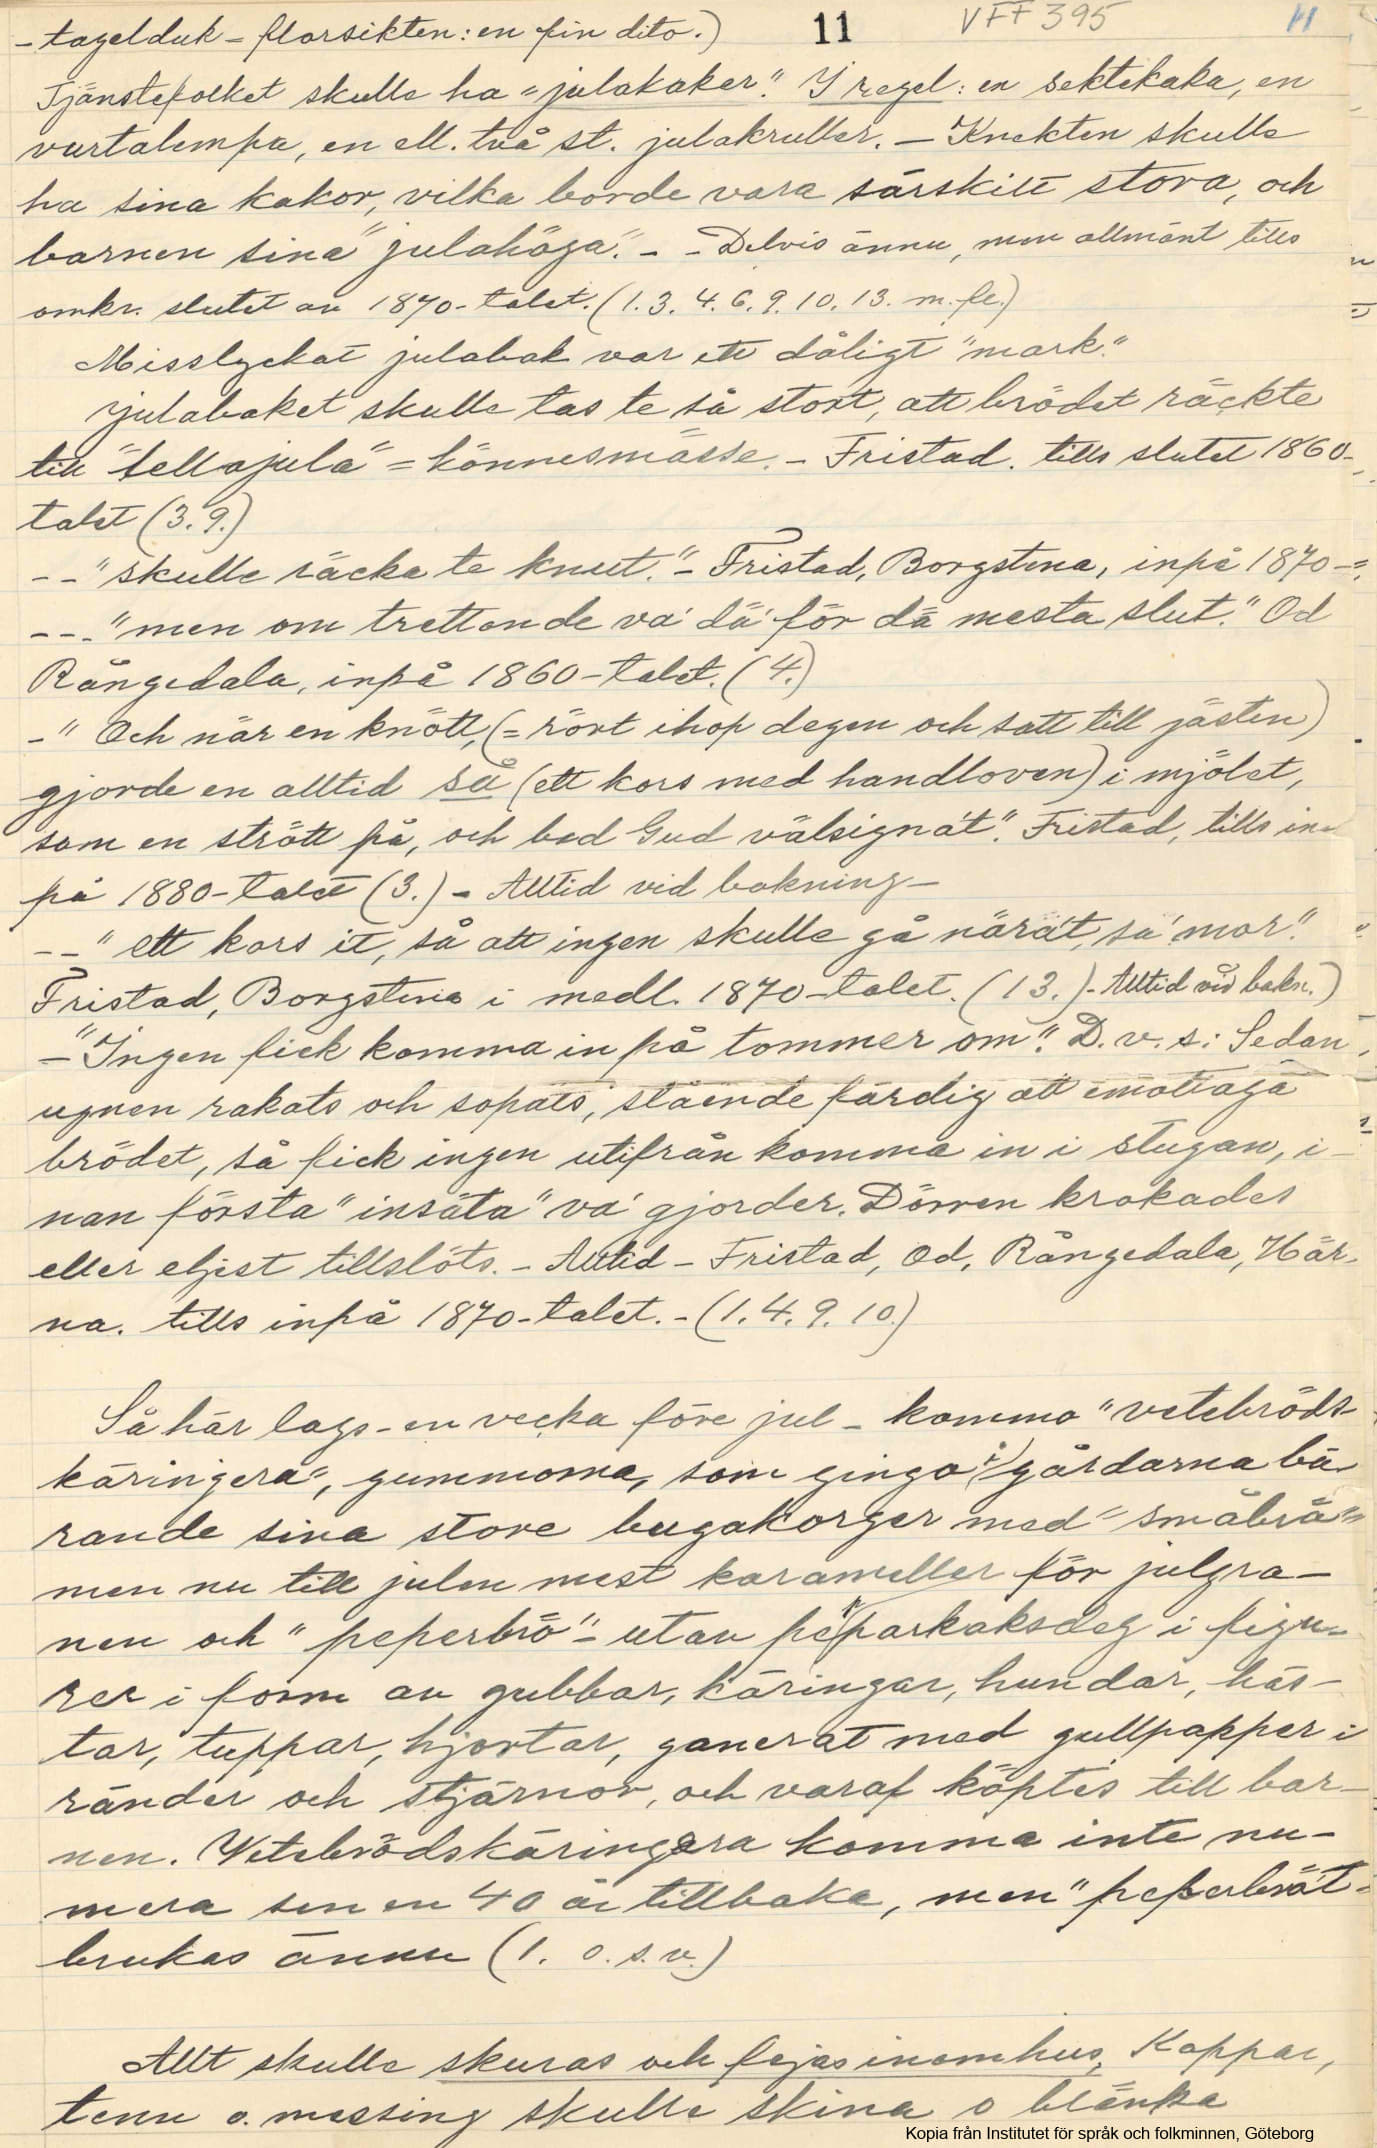 11 VFF 395 11
- tagelduk = florsikten: en fin dito.)
Tjänstefolket skulle ha "julakaker." I regel: en sektekaka, en
vurtalempa, en ell. två st. julakruller. - Knekten skulle
ha sina kakor, vilka borde vara särskilt stora, och
barnen sina "julahöga". - - Delvis ännu, men allmänt tills
omkr. slutet av 1870-talet. (1. 3. 4. 6. 9. 10. 13. m. fl.)
Misslyckat julabak var ett dåligt "mark."
Julabaket skulle tas te så stort, att brödet räckte
till "tellajula" = könnesmässe. - Fristad. tills slutet 1860-
talet (3. 9.)
- - "skulle räcka te knut." - Fristad, Borgstena, inpå 1870-
- - - "men om trettonde va' dä' för dä mesta slut." Od
Rångedala, inpå 1860-talet. (4.)
- "Och när en knött, (= rört ihop degen och satt till jästen)
gjorde en alltid så (ett kors med handloven) i mjölet,
som en strött på, och bad Gud välsigna't". Fristad, tills in-
på 1880-talet (3.) - Alltid vid bakning -
- - "ett kors it, så att ingen skulle gå närä't, sa' mor."
Fristad, Borgstena i medl. 1870-talet. (13.) - Alltid vid bakn.)
- "Ingen fick komma in på tommer om". D. v. s: Sedan
ugnen rakats och sopats, stående färdig att emottaga
brödet, så fick ingen utifrån komma in i stugan, i-
nan första "insäta" va' gjorder. Dörren krokades
eller eljest tillslöts. - Alltid - Fristad, Od, Rångedala, Här-
na. tills inpå 1870-talet. - (1. 4. 9. 10.)
Så här lags - en vecka före jul - komma "vetebröds-
käringera", gummorna, som gingo i gårdarna bä-
rande sina store bugakorger med "småbrä"
men nu till julen mest karameller för julgra-
nen och "peperbrö" - utav pepparkaksdeg i figu-
rer i form av gubbar, käringar, hundar, häs-
tar, tuppar, hjortar, ganerat med gullpapper i
ränder och stjärnor, och varaf köptes till bar-
nen. Vetebrödskäringera komma inte nu-
mera sen en 40 år tillbaka, men "peperbrö't"
brukas ännu (1. o. s. v.)
Allt skulle skuras och fejas inomhus. Koppar,
tenn o. messing skulle skina o blänka
Kopia från Institutet för språk och folkminnen, Göteborg